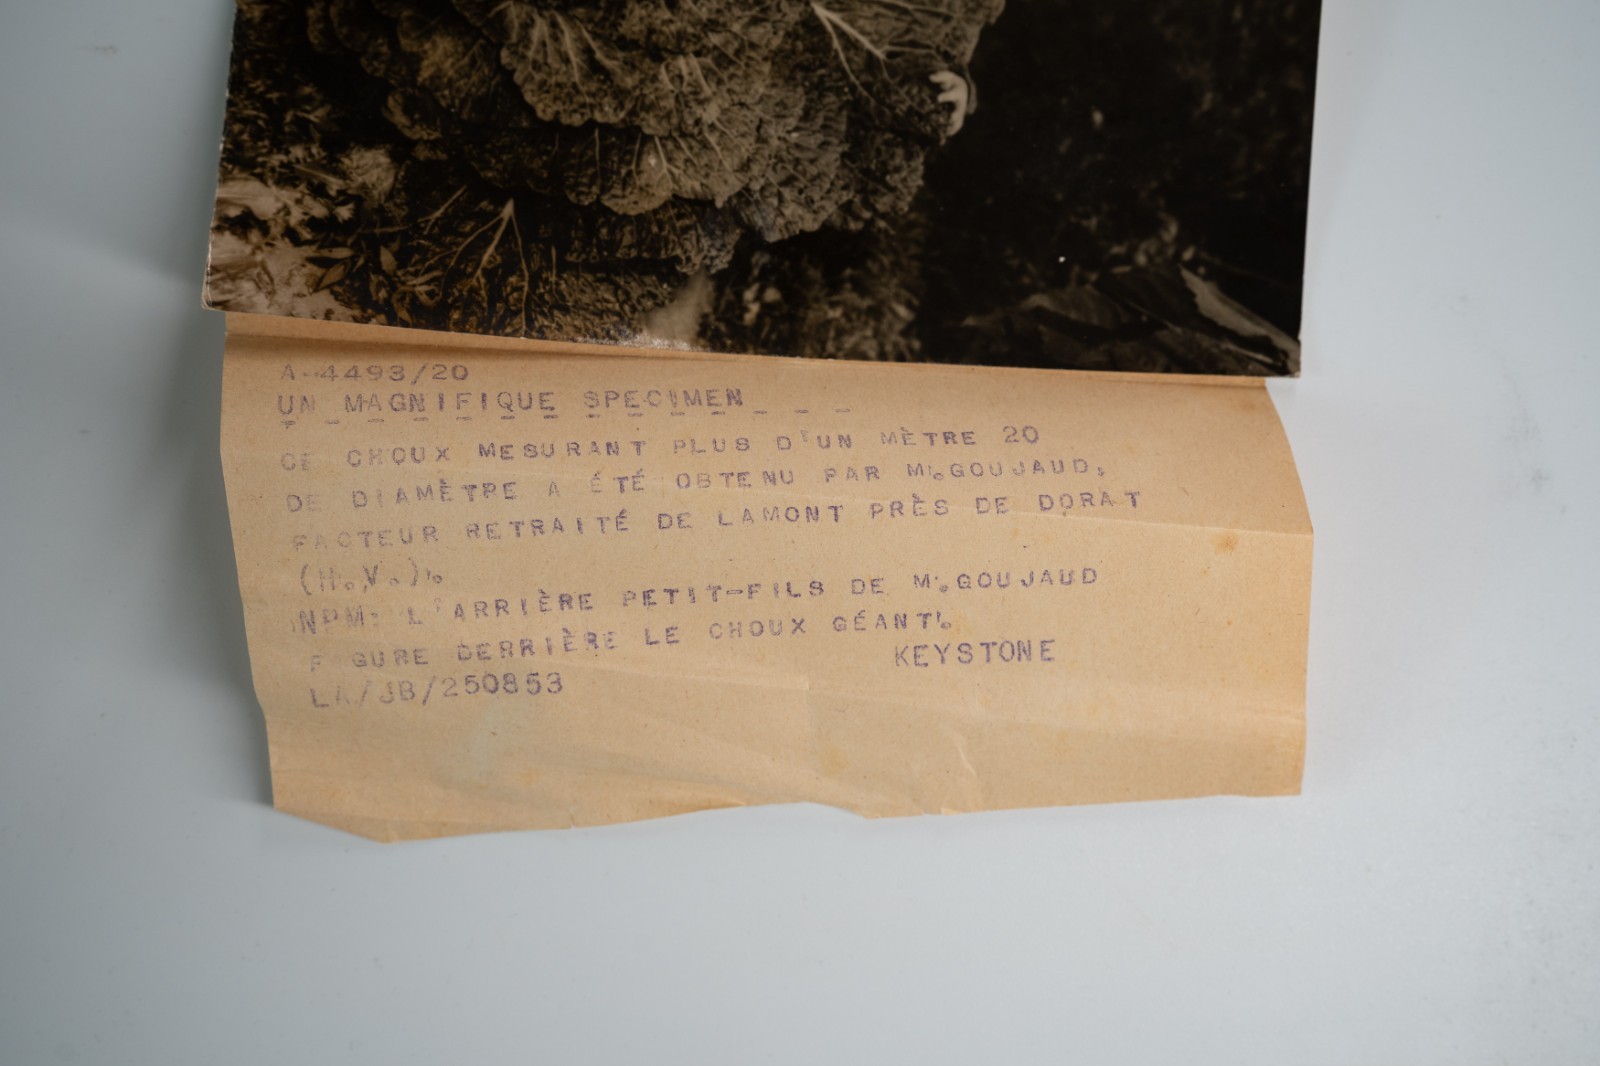 A-4493/20
UN MAGNIFIQUE SPECIMEN
CE CHOUX MESURANT PLUS D'UN MÈTRE 20
DE DIAMÈTRE A ÉTÉ OBTENU PAR M.GOUJAUD,
FACTEUR RETRAITÉ DE LAMONT PRÈS DE DORAT
(H.V.).
NPM: L'ARRIÈRE PETIT-FILS DE M.GOUJAUD
FIGURE DERRIÈRE LE CHOUX GÉANT.
KEYSTONE
LA/JB/250853